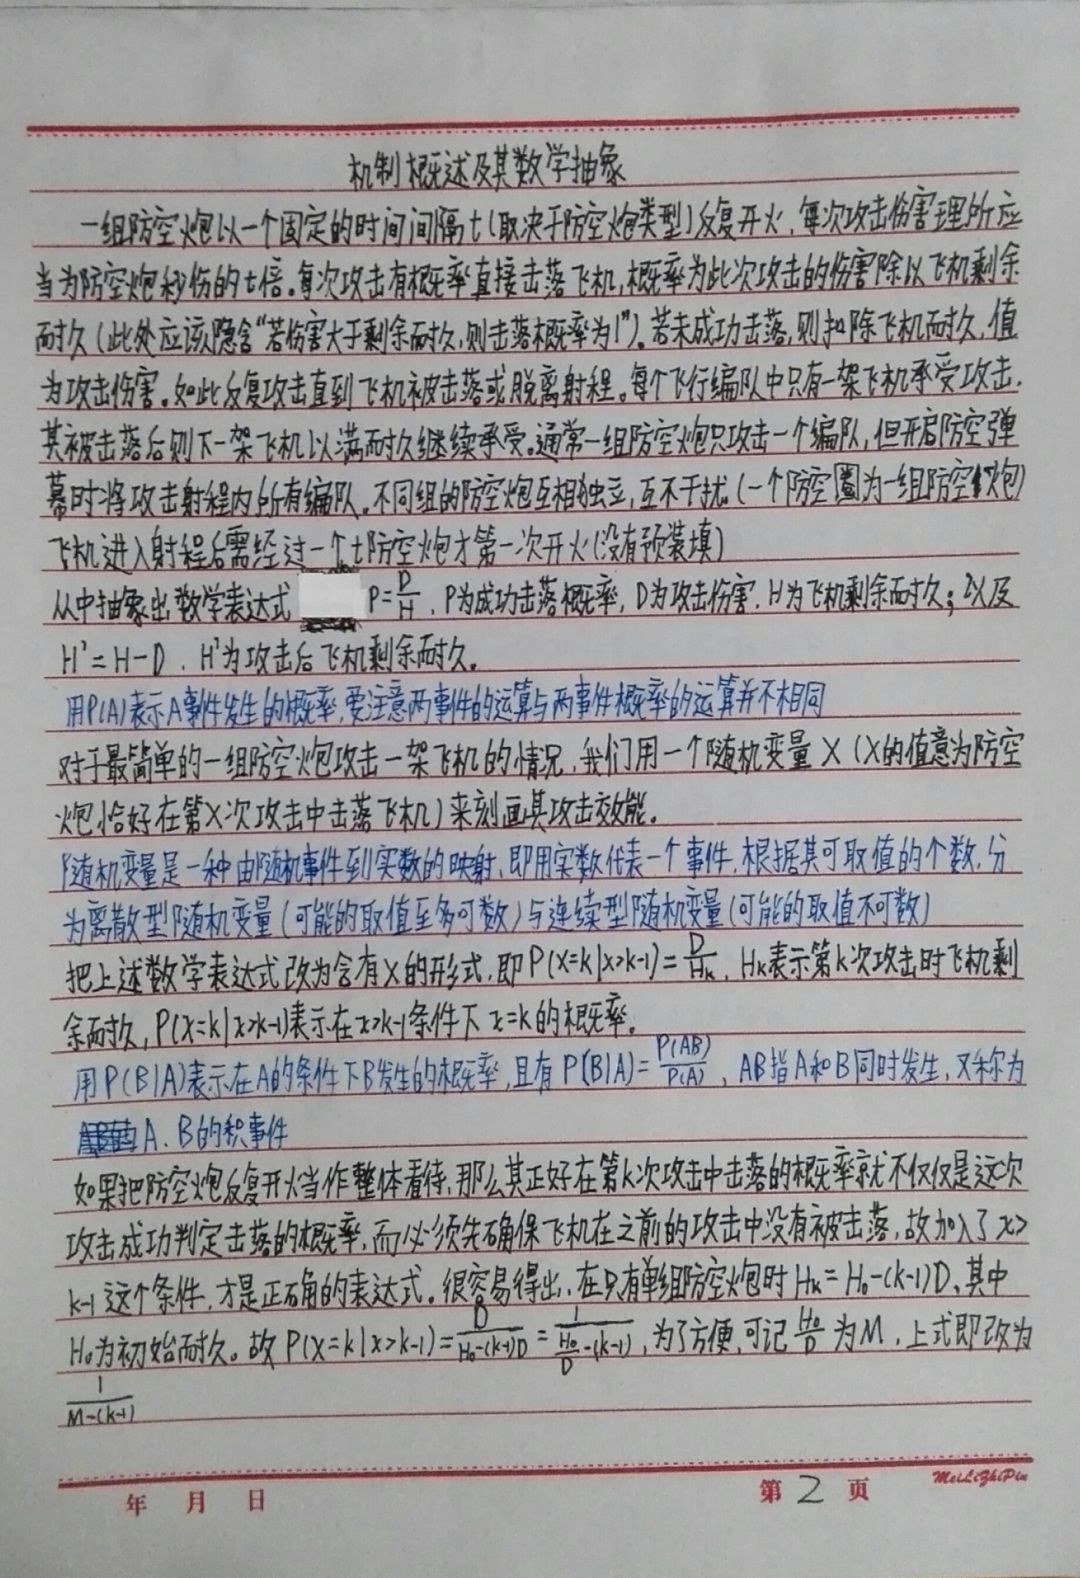 机制概述及其数学抽象
一组防空炮以一个固定的时间间隔t(取决于防空炮类型)反复开火,每次攻击伤害理所应
当为防空炮秒伤的t倍。每次攻击有概率直接击落飞机,概率为此次攻击的伤害除以飞机剩余
耐久(此处应该隐含“若伤害大于剩余耐久,则击落概率为1”)。若未成功击落,则扣除飞机耐久,值
为攻击伤害。如此反复攻击直到飞机被击落或脱离射程。每个飞行编队中只有一架飞机承受攻击,
其被击落后则下一架飞机以满耐久继续承受。通常一组防空炮只攻击一个编队,但开启防空弹
幕时将攻击射程内所有编队。不同组的防空炮互相独立,互不干扰。(一个防空圈为一组防空炮)
飞机进入射程后需经过一个t防空炮才第一次开火(没有预装填)
从中抽象出数学表达式 P=D/H,P为成功击落概率,D为攻击伤害,H为飞机剩余耐久;以及
H'=H-D,H'为攻击后飞机剩余耐久。
用P(A)表示A事件发生的概率,要注意两事件的运算与两事件概率的运算并不相同
对于最简单的一组防空炮攻击一架飞机的情况,我们用一个随机变量X(X的值意为防空
炮恰好在第X次攻击中击落飞机)来刻画其攻击效能。
随机变量是一种由随机事件到实数的映射,即用实数代表一个事件,根据其可取值的个数,分
为离散型随机变量(可能的取值至多可数)与连续型随机变量(可能的取值不可数)
把上述数学表达式改为含有X的形式,即P(X=k|x>k-1)=D/Hk,Hk表示第k次攻击时飞机剩
余耐久,P(X=k|x>k-1)表示在x>k-1条件下x=k的概率。
用P(B|A)表示在A的条件下B发生的概率,且有P(B|A)=P(AB)/P(A),AB指A和B同时发生,又称为
A、B的积事件
如果把防空炮反复开火当作整体看待,那么其正好在第k次攻击中击落的概率就不仅仅是这次
攻击成功判定击落的概率,而必须先确保飞机在之前的攻击中没有被击落,故加入了x>
k-1这个条件,才是正确的表达式。很容易得出,在只有单组防空炮时Hk=H₀-(k-1)D,其中
H₀为初始耐久。故P(X=k|x>k-1)=D/(H₀-(k-1)D)=1/(H₀/D-(k-1)),为了方便,可记H₀/D为M,上式即改为
1/(M-(k-1))
年 月 日 第 2 页 MeiLiZhiPin